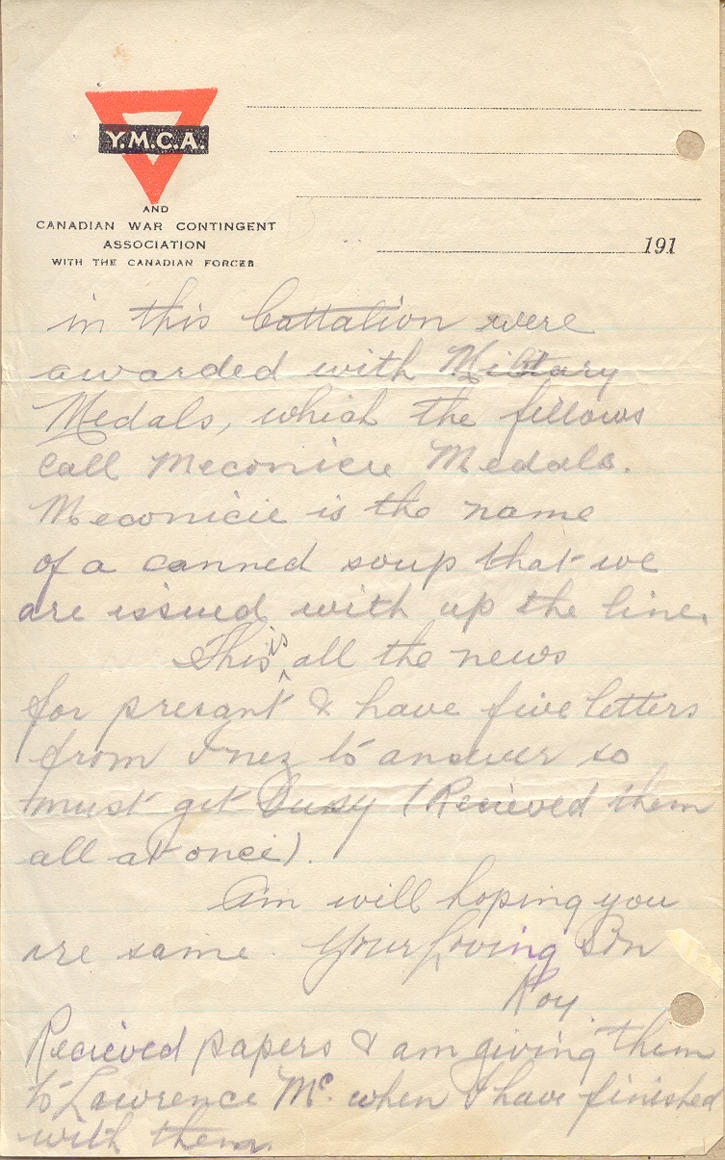 Y.M.C.A.
AND
CANADIAN WAR CONTINGENT
ASSOCIATION
WITH THE CANADIAN FORCES
191
in this battalion were
awarded with Military
Medals, which the fellows
call Meconicie Medals.
Meconicie is the name
of a canned soup that we
are issued with up the line.
This is all the news
for presant & have five letters
from Inez to answer so
must get busy (Recieved them
all at once).
Am will hoping you
are same. Your Loving Son
Roy.
Recieved papers & am giving them
to Lawrence Mc. when I have finished
with them.